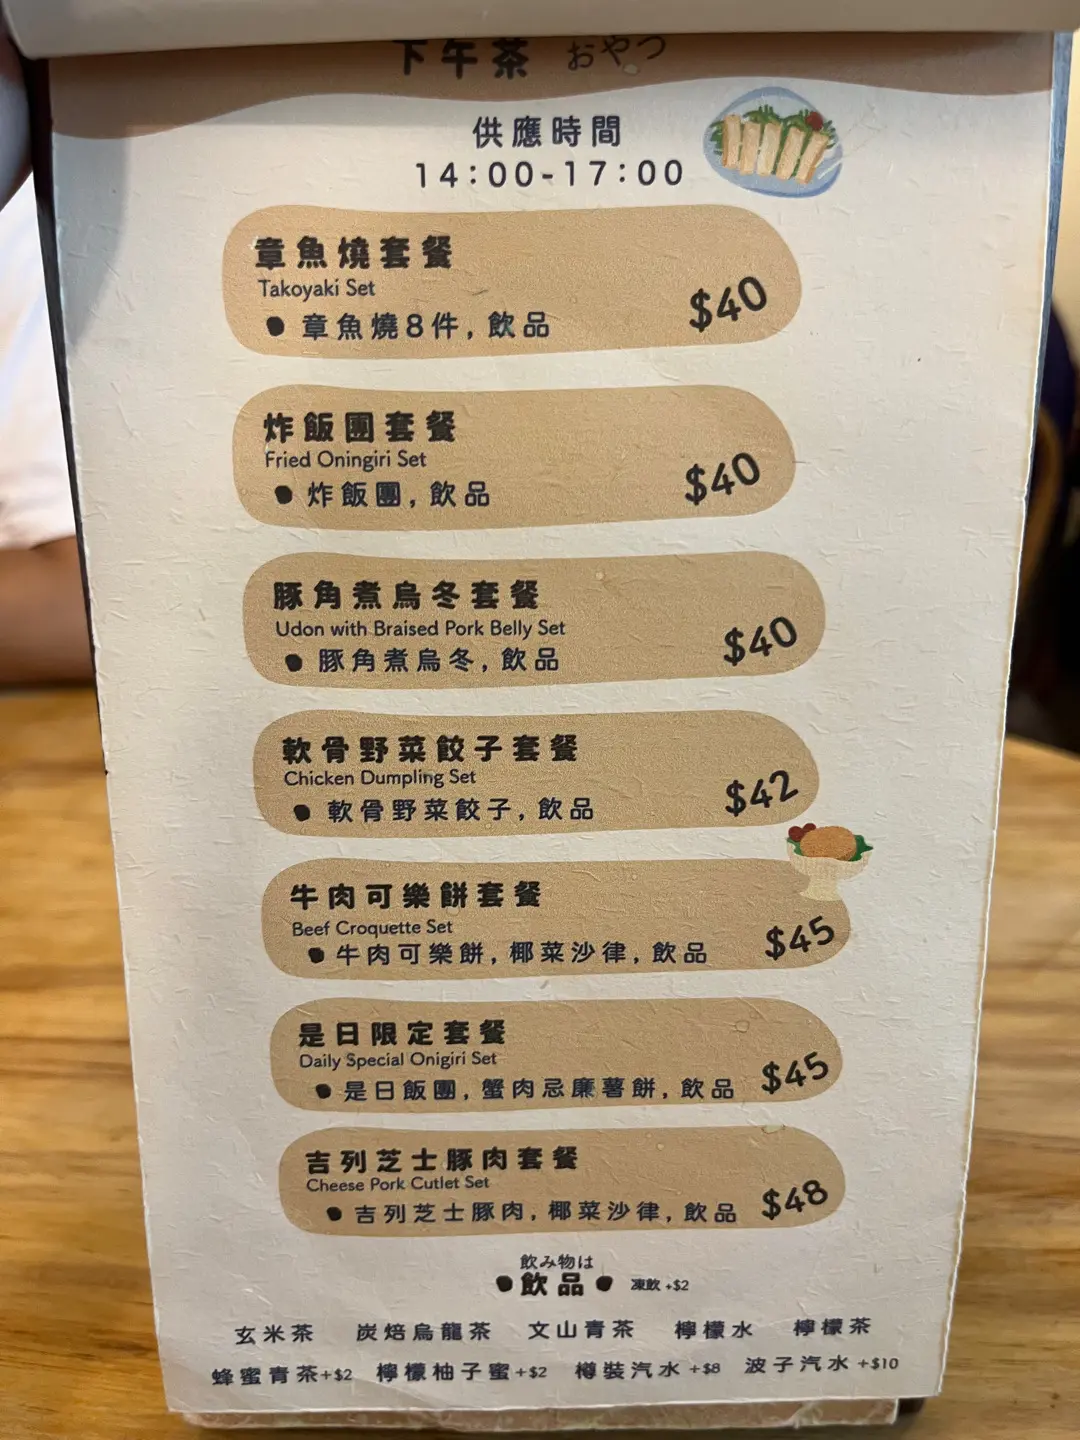 下午茶 おやつ
供應時間
14:00-17:00
章魚燒套餐
Takoyaki Set
● 章魚燒8件, 飲品
$40
炸飯團套餐
Fried Oningiri Set
● 炸飯團, 飲品
$40
豚角煮烏冬套餐
Udon with Braised Pork Belly Set
● 豚角煮烏冬, 飲品
$40
軟骨野菜餃子套餐
Chicken Dumpling Set
● 軟骨野菜餃子, 飲品
$42
牛肉可樂餅套餐
Beef Croquette Set
● 牛肉可樂餅, 椰菜沙律, 飲品
$45
是日限定套餐
Daily Special Onigiri Set
● 是日飯團, 蟹肉忌廉薯餅, 飲品
$45
吉列芝士豚肉套餐
Cheese Pork Cutlet Set
● 吉列芝士豚肉, 椰菜沙律, 飲品
$48
飲み物は
● 飲品 ● 凍飲 +$2
玄米茶 炭焙烏龍茶 文山青茶 檸檬水 檸檬茶
蜂蜜青茶+$2 檸檬柚子蜜+$2 樽裝汽水+$8 波子汽水+$10